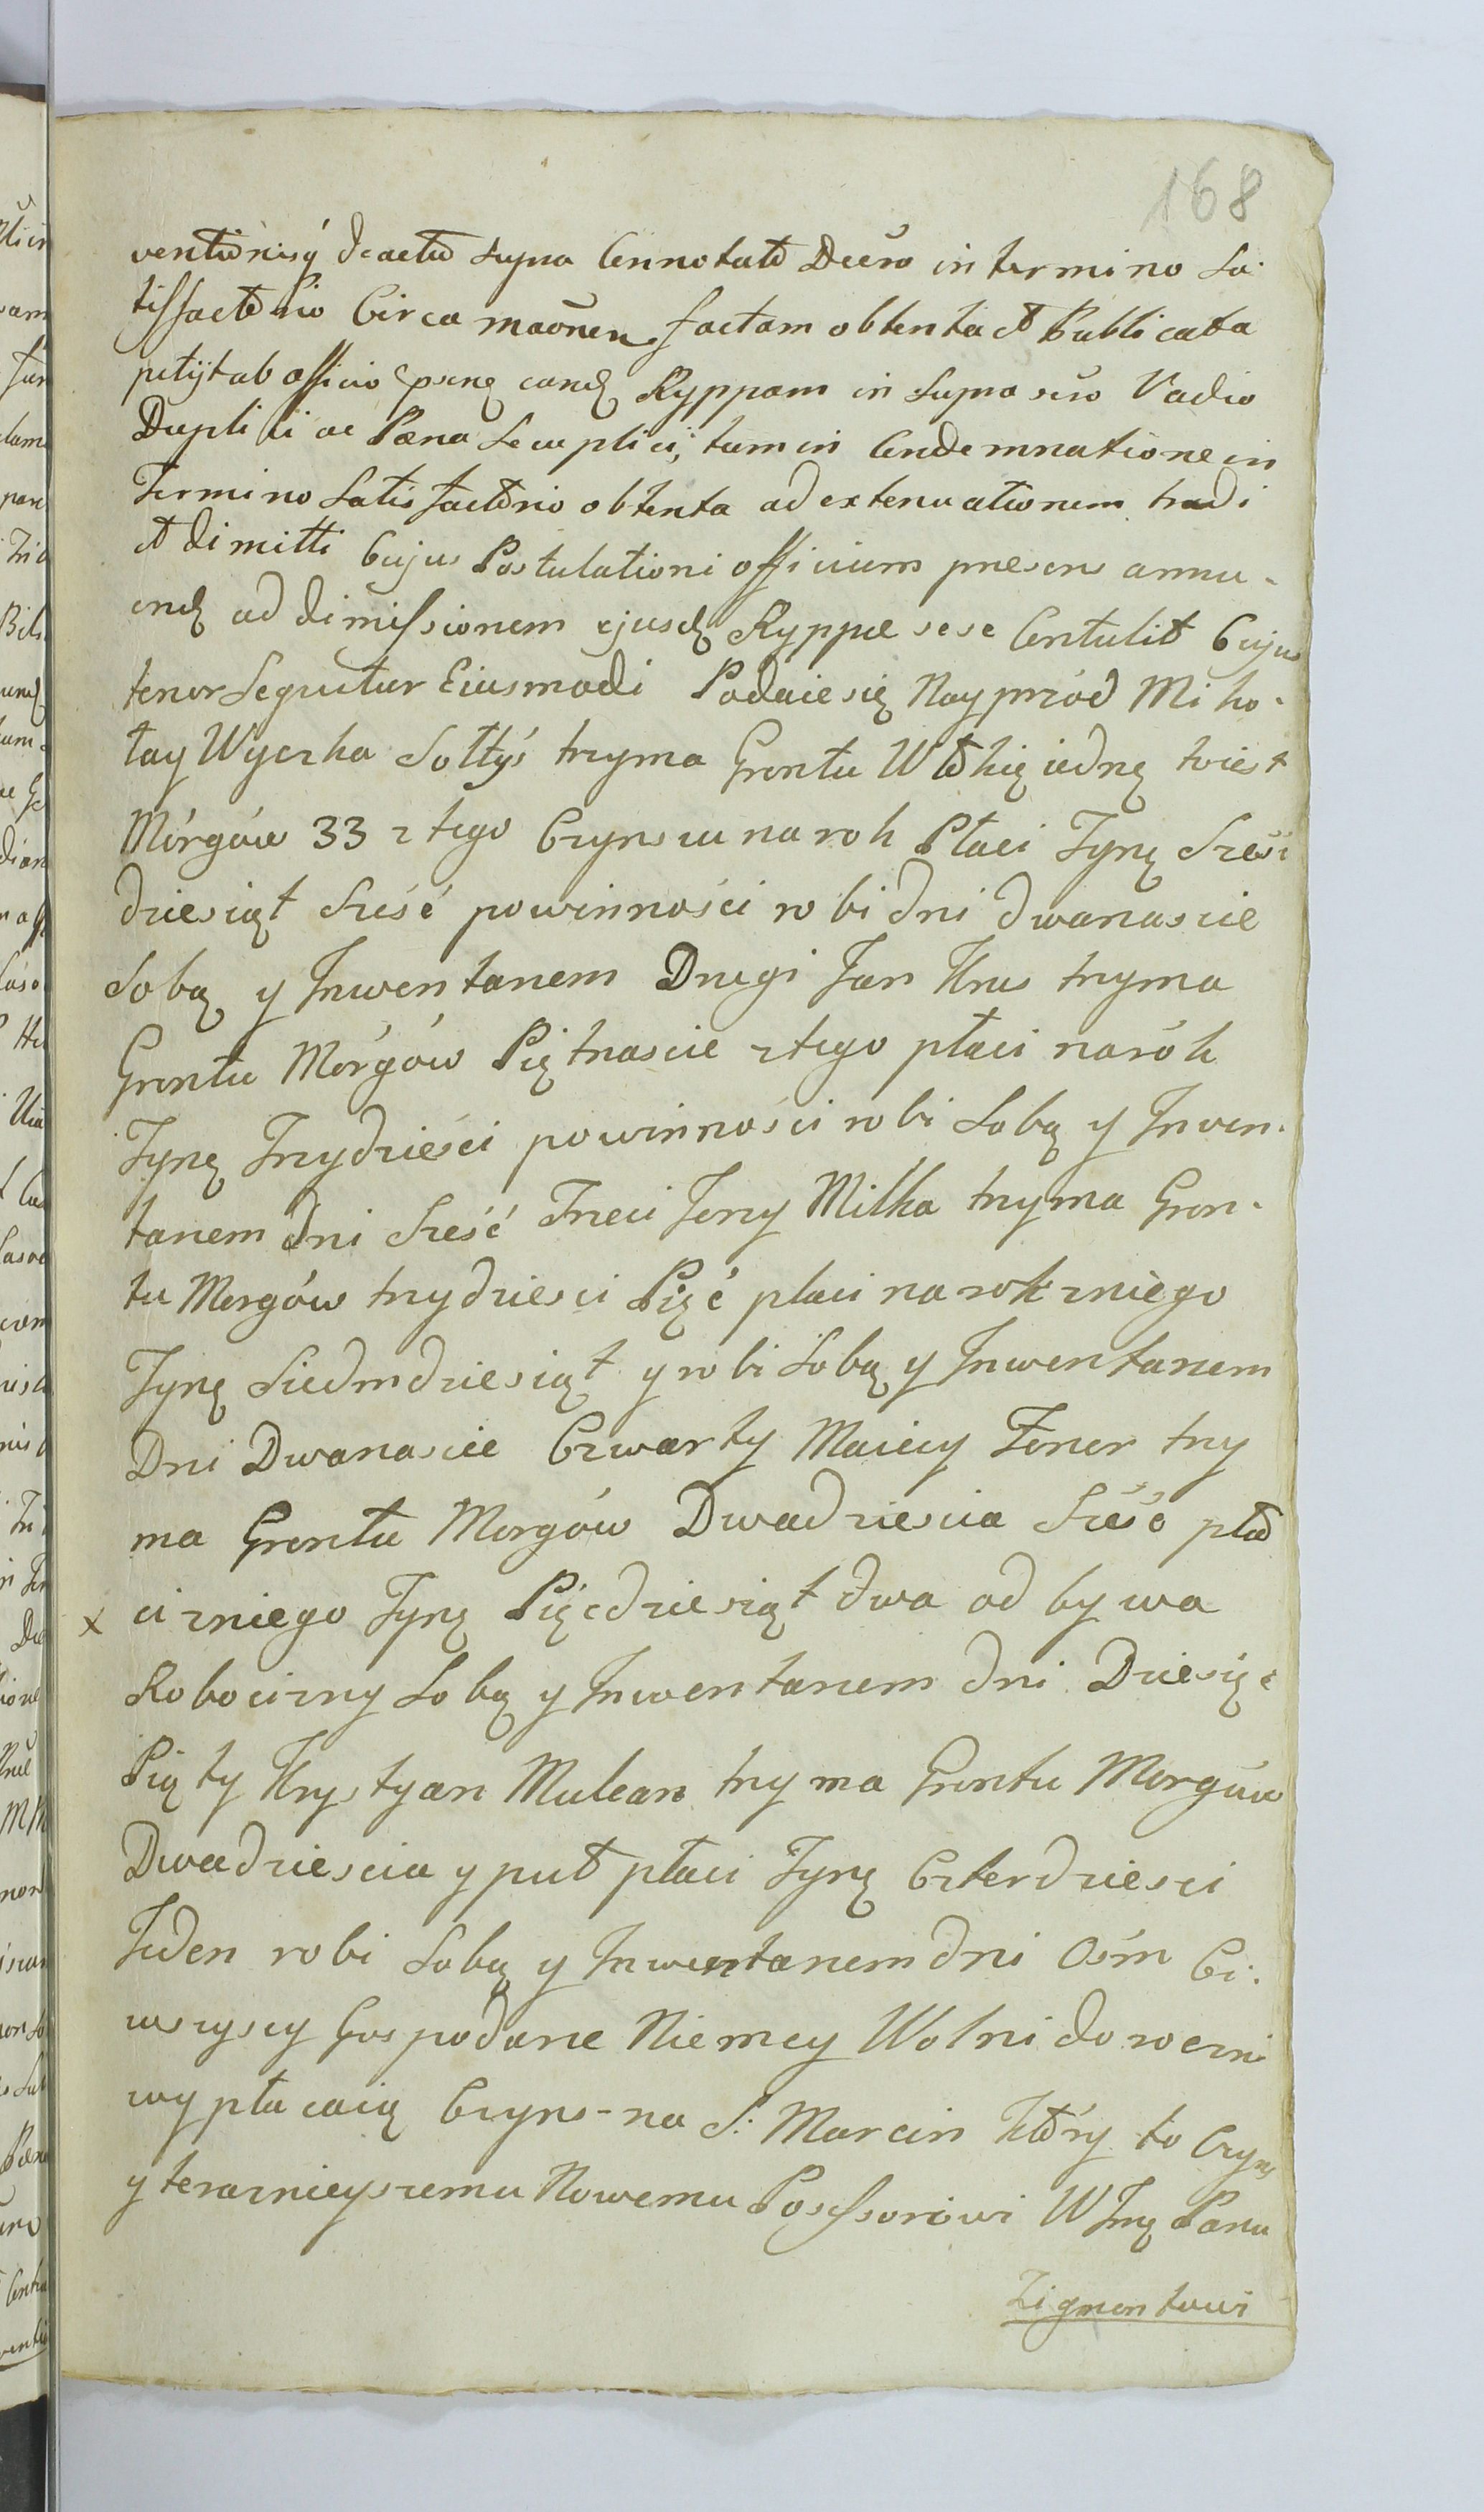 168
ventionisq de actu supra Connotato Deĉro in termino Sa-
tisfactorio Circa maônem factam obtenta et Publicata
petijt ab officio pseng eand Ryppam in supra Vadio
Duplici ac Pæna Sexuplici, tum in Condemnatione in
Termino Satisfactorio obtenta ad extenuationem tradi
et dimitti Cujus Postulationi officium præsens annu-
end ad dimissionem ejusd Ryppæ sese Contulit Cujus
tenor Sequitur Eiusmodi Podaie się Nayprzód Miko-
łay Wyczka Sołtys trzyma Grontu Włokię iednę to iest
Mórgów 33 z tego Czynszu na rok Płaci Tynę Sześć
dziesiąt Sześć powinności robi dni dwanascie
Sobą y Inwentarzem Drugi Jan Krus trzyma
Grontu Mórgów Piętnascie z tego płaci na rók
Tynę Trzydzieści powinności robi Sobą y Inwen-
tarzem dni Sześć Trzeci Jerzy Milka trzyma Gron-
tu Morgów trzydziesci Pięć płaci na rok z niego
Tynę Siedmdziesiąt y robi Sobą y Inwentarzem
Dni Dwanascie Czwarty Maciey Foner trzy
ma Grontu Morgów Dwadziescia Sześć pła
x ci z niego Tynę Pięcdziesiąt dwa odbywa
Robocizny Sobą y Inwentarzem dni Dziesięć
Piąty Krystyan Mulcan trzyma Grontu Morgów
Dwadziescia y puł płaci Tynę Czterdziesci
Jeden robi Sobą y Inwentarzem dni Ośm Ci.
wszyscy Gospodarze Niemcy Wolni doroczni
wypłacaią Czynsz-na S: Marcin Który to Czynsz
y terazniejszemu Nowemu Possessorowi W Jmę Panu
Zigmontowi